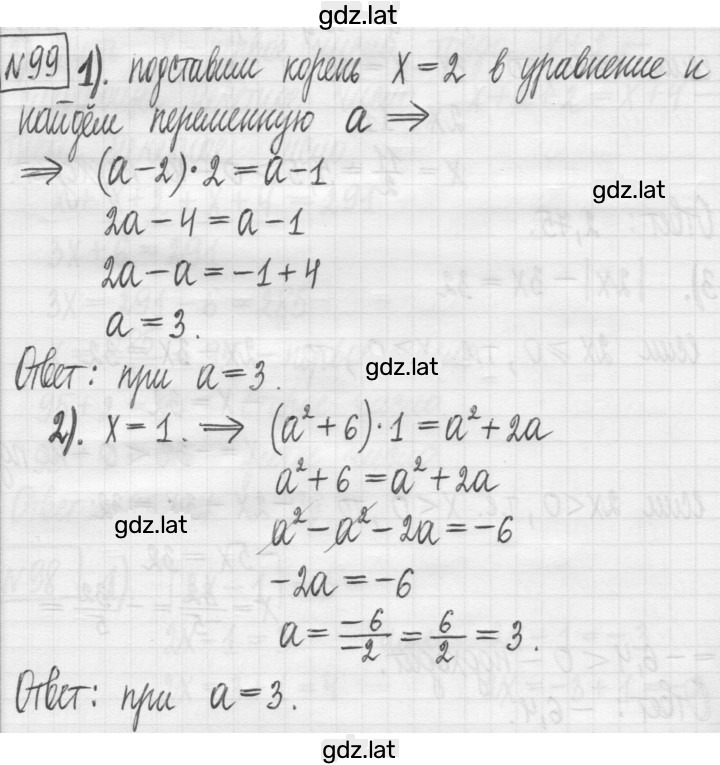 gdz.lat
№99 1). подставим корень x=2 в уравнение и
найдём переменную a ⇒
⇒ (a-2)·2=a-1
gdz.lat
2a-4=a-1
2a-a=-1+4
a=3.
Ответ: при a=3.
gdz.lat
2). x=1. ⇒ (a²+6)·1=a²+2a
a²+6=a²+2a
gdz.lat
a²-a²-2a=-6
-2a=-6
a=\frac{-6}{-2}=\frac{6}{2}=3.
Ответ: при a=3.
gdz.lat